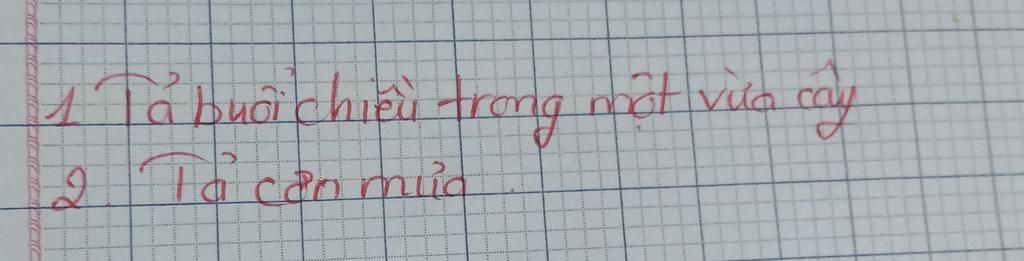 1 Tả buổi chiều trong một vừa cây
2 Tả cơn mưa